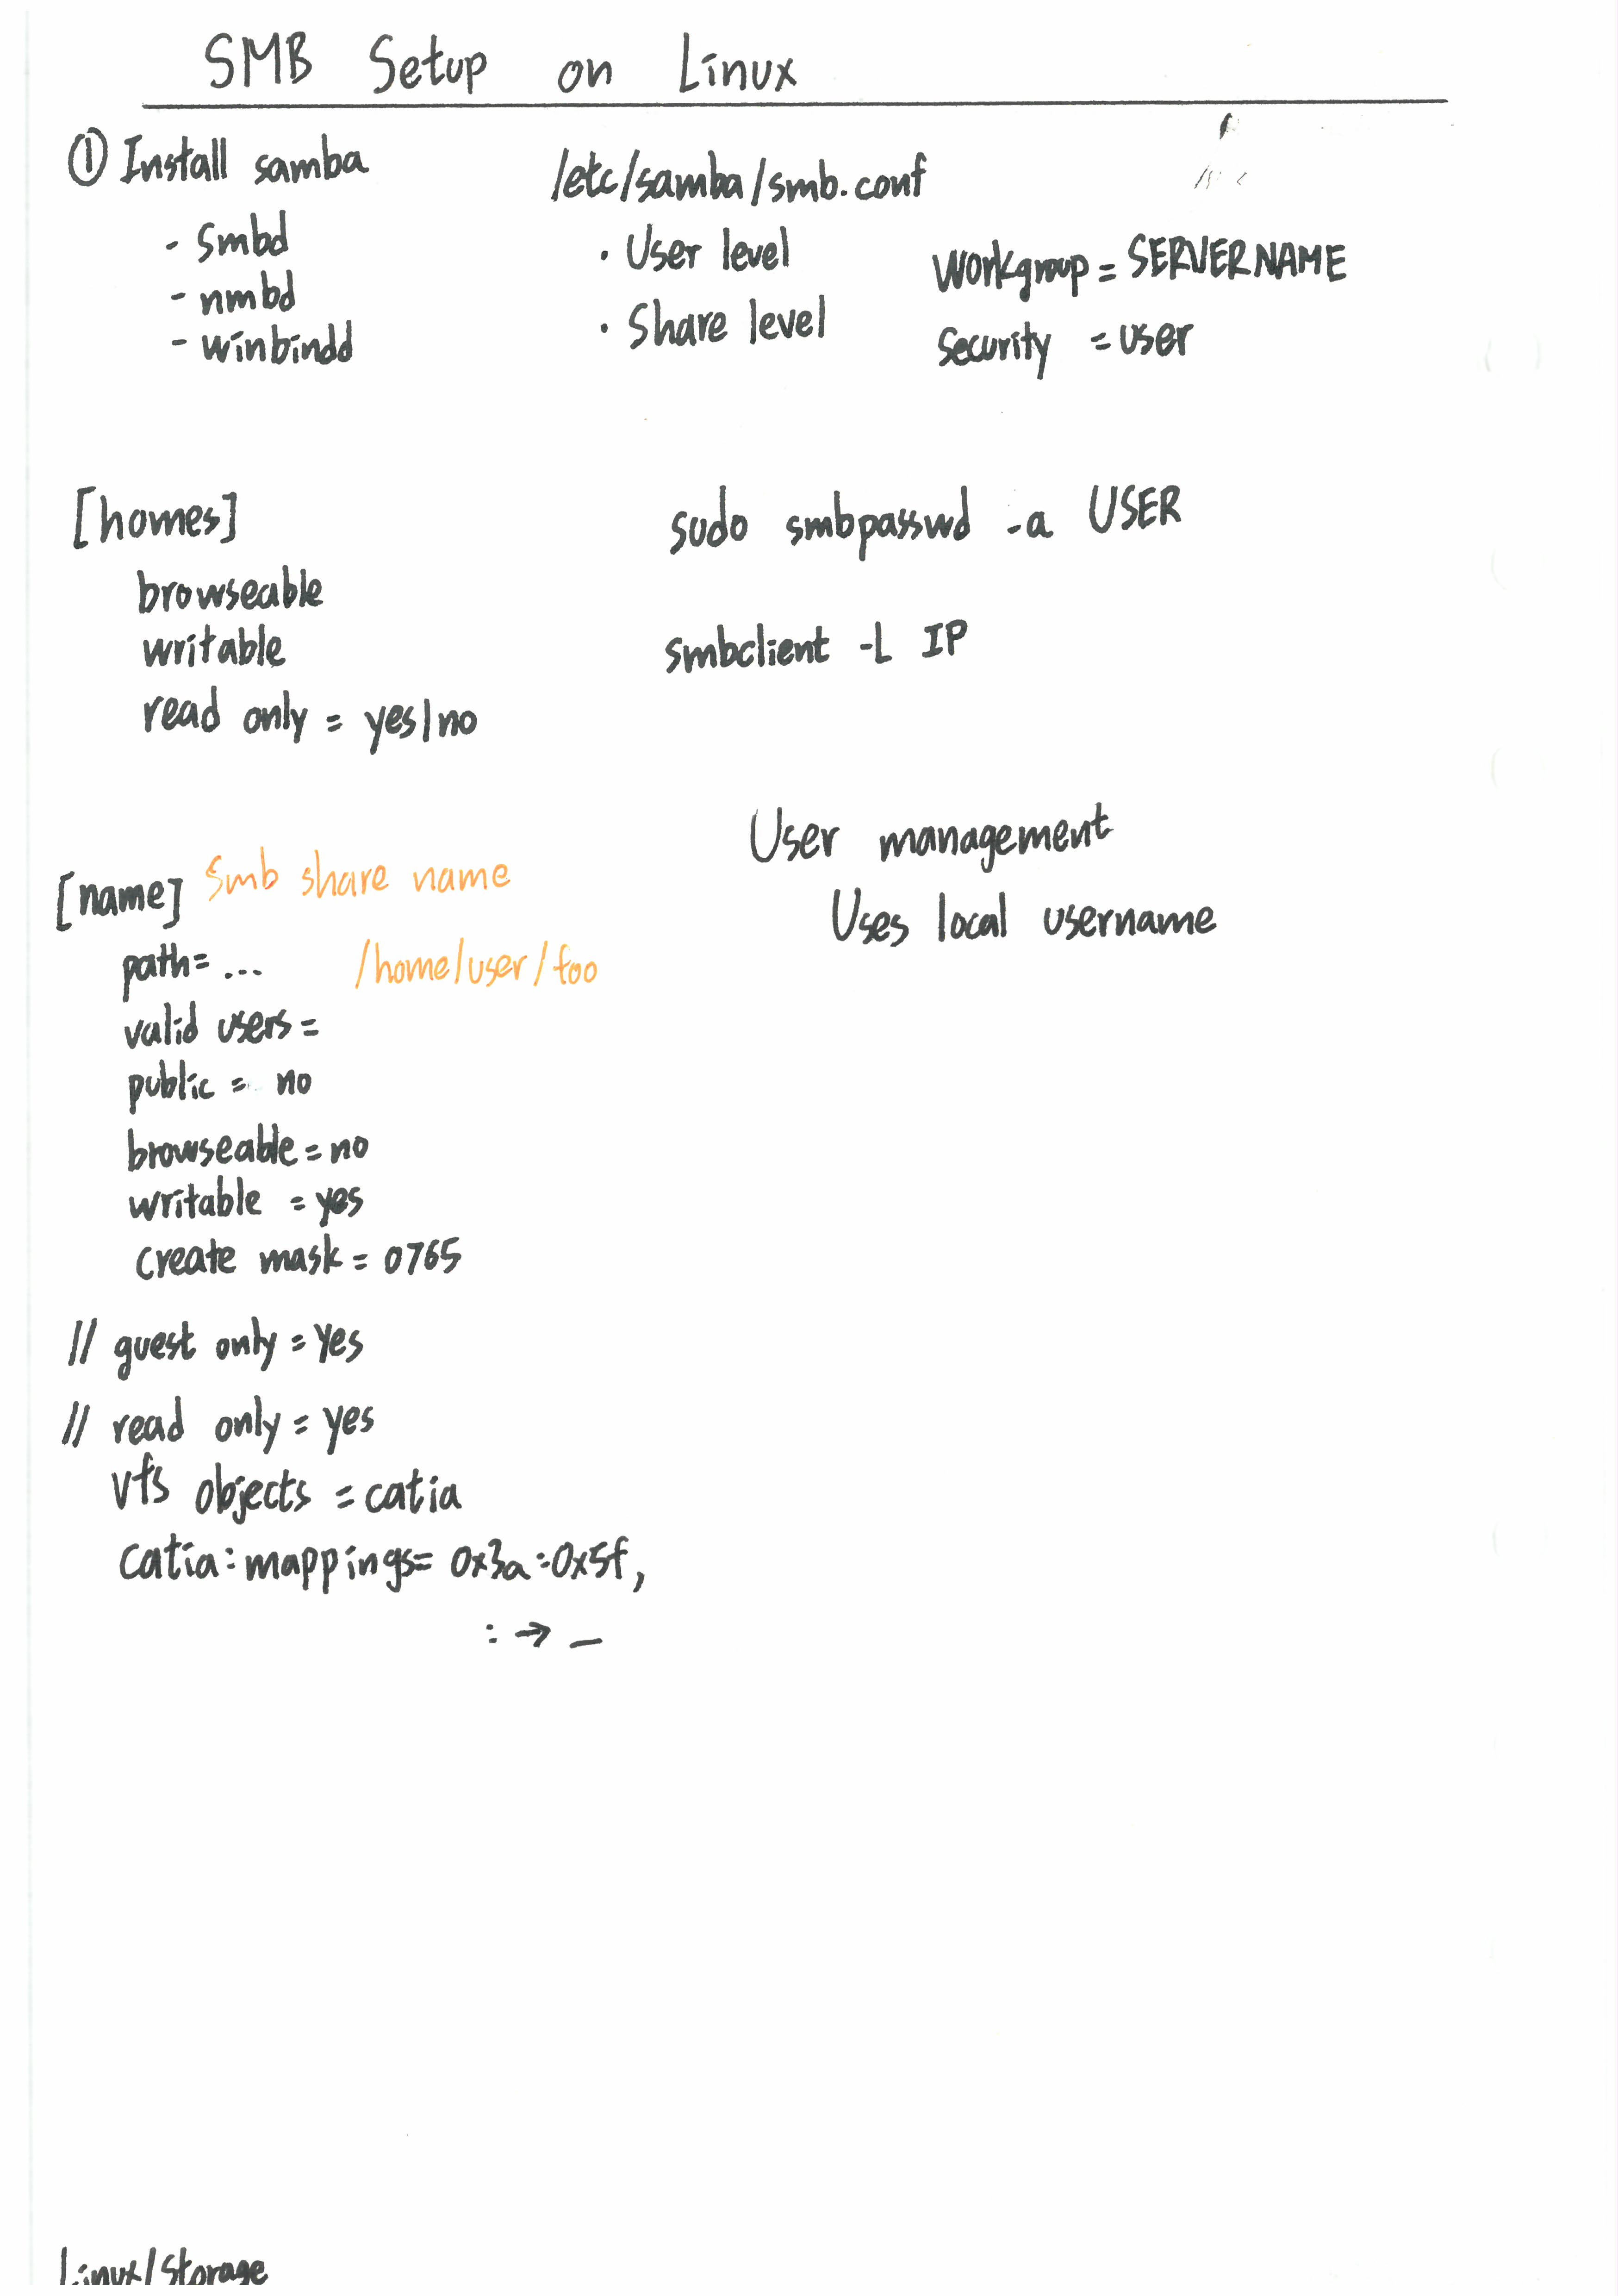 SMB Setup on Linux
① Install samba
- smbd
- nmbd
- winbindd
/etc/samba/smb.conf
· User level
· Share level
Workgroup = SERVERNAME
Security = user
[homes]
browseable
writable
read only = yes|no
sudo smbpasswd -a USER
smbclient -L IP
User management
Uses local username
[name] Smb share name
path= ... /home/user/foo
valid users =
public = no
browseable = no
writable = yes
create mask = 0765
// guest only = yes
// read only = yes
vfs objects = catia
catia:mappings= 0x3a:0x5f,
: → _
Linux/Storage